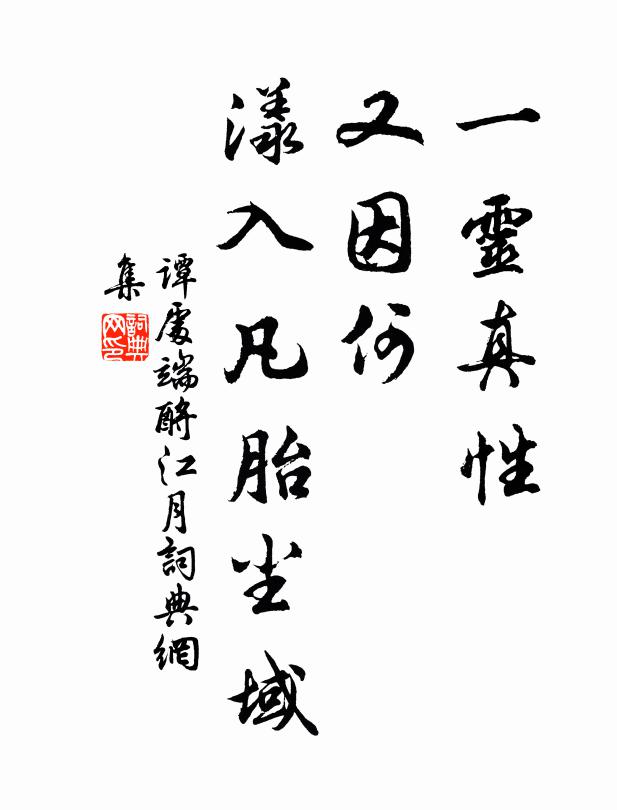 一靈真性
又因何
漾入凡胎尘域
譚處端酹江月詞典網
集
詞典
网印